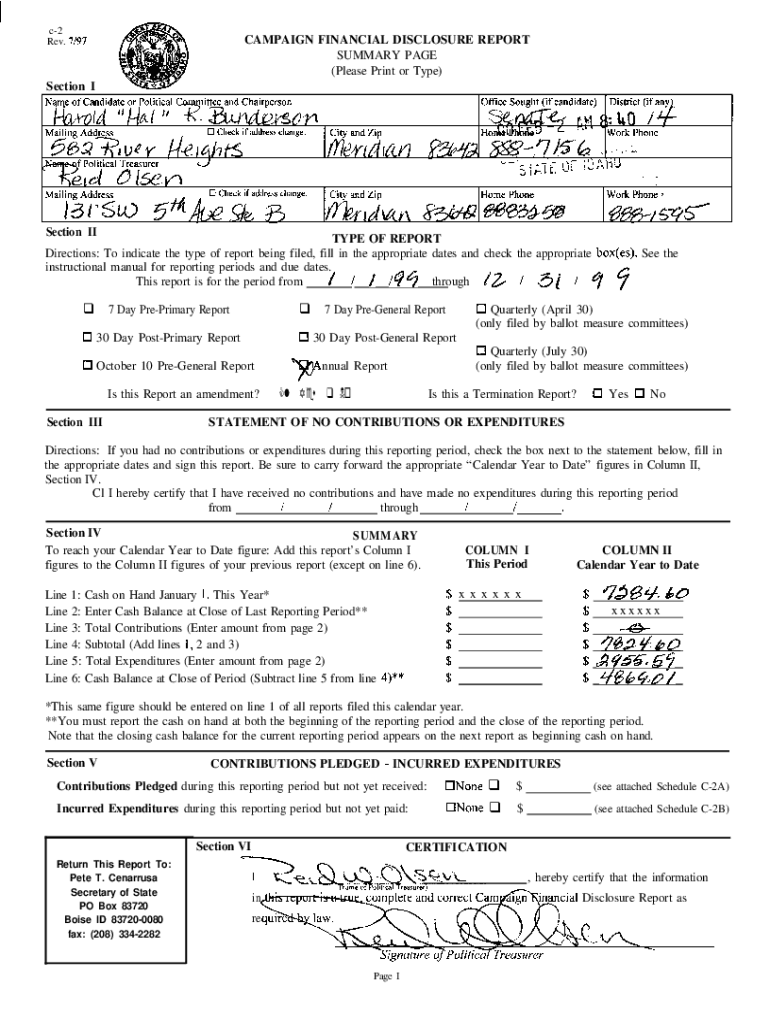 c-2
Rev. 7/97
CAMPAIGN FINANCIAL DISCLOSURE REPORT
SUMMARY PAGE
(Please Print or Type)
Section I
Name of Candidate or Political Committee and Chairperson Office Sought (if candidate) District (if any)
Harold "Hal" R. Bunderson Senate AM 8:40 14
Mailing Address Check if address change. City and Zip Home Phone Work Phone
582 River Heights Meridian 83642 888-7156
Name of Political Treasurer STATE OF IDAHO
Reid Olsen
Mailing Address Check if address change. City and Zip Home Phone Work Phone
131 SW 5th Ave Ste B Meridian 83642 8883258 888-1595
Section II
TYPE OF REPORT
Directions: To indicate the type of report being filed, fill in the appropriate dates and check the appropriate box(es). See the
instructional manual for reporting periods and due dates.
This report is for the period from 1 / 1 /99 through 12 / 31 / 99
7 Day Pre-Primary Report 7 Day Pre-General Report Quarterly (April 30)
(only filed by ballot measure committees)
30 Day Post-Primary Report 30 Day Post-General Report
Quarterly (July 30)
October 10 Pre-General Report Annual Report (only filed by ballot measure committees)
Is this Report an amendment? Is this a Termination Report? Yes No
Section III STATEMENT OF NO CONTRIBUTIONS OR EXPENDITURES
Directions: If you had no contributions or expenditures during this reporting period, check the box next to the statement below, fill in
the appropriate dates and sign this report. Be sure to carry forward the appropriate “Calendar Year to Date” figures in Column II,
Section IV.
Cl I hereby certify that I have received no contributions and have made no expenditures during this reporting period
from / / through / / .
Section IV SUMMARY
To reach your Calendar Year to Date figure: Add this report's Column I COLUMN I COLUMN II
figures to the Column II figures of your previous report (except on line 6). This Period Calendar Year to Date
Line 1: Cash on Hand January 1. This Year* $ x x x x x x $
Line 2: Enter Cash Balance at Close of Last Reporting Period** $ $ x x x x x x
Line 3: Total Contributions (Enter amount from page 2) $ $
Line 4: Subtotal (Add lines 1, 2 and 3) $ $ 7824.60
Line 5: Total Expenditures (Enter amount from page 2) $ $ 2955.59
Line 6: Cash Balance at Close of Period (Subtract line 5 from line 4)** $ $ 4869.01
*This same figure should be entered on line 1 of all reports filed this calendar year.
**You must report the cash on hand at both the beginning of the reporting period and the close of the reporting period.
Note that the closing cash balance for the current reporting period appears on the next report as beginning cash on hand.
Section V CONTRIBUTIONS PLEDGED - INCURRED EXPENDITURES
Contributions Pledged during this reporting period but not yet received: None $ (see attached Schedule C-2A)
Incurred Expenditures during this reporting period but not yet paid: None $ (see attached Schedule C-2B)
Section VI CERTIFICATION
Return This Report To:
Pete T. Cenarrusa
Secretary of State
PO Box 83720
Boise ID 83720-0080
fax: (208) 334-2282
I Reid W. Olsen , hereby certify that the information
(Name of Political Treasurer)
in this report is a true, complete and correct Campaign Financial Disclosure Report as
required by law.
Signature of Political Treasurer
Page I